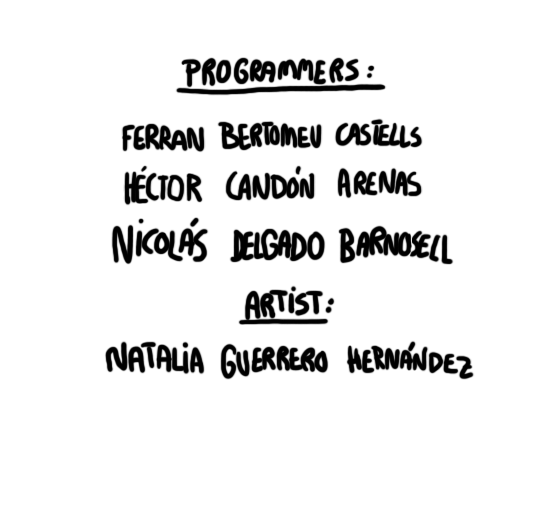 PROGRAMMERS:
FERRAN BERTOMEU CASTELLS
HÉCTOR CANDÓN ARENAS
NICOLÁS DELGADO BARNOSELL
ARTIST:
NATALIA GUERRERO HERNÁNDEZ